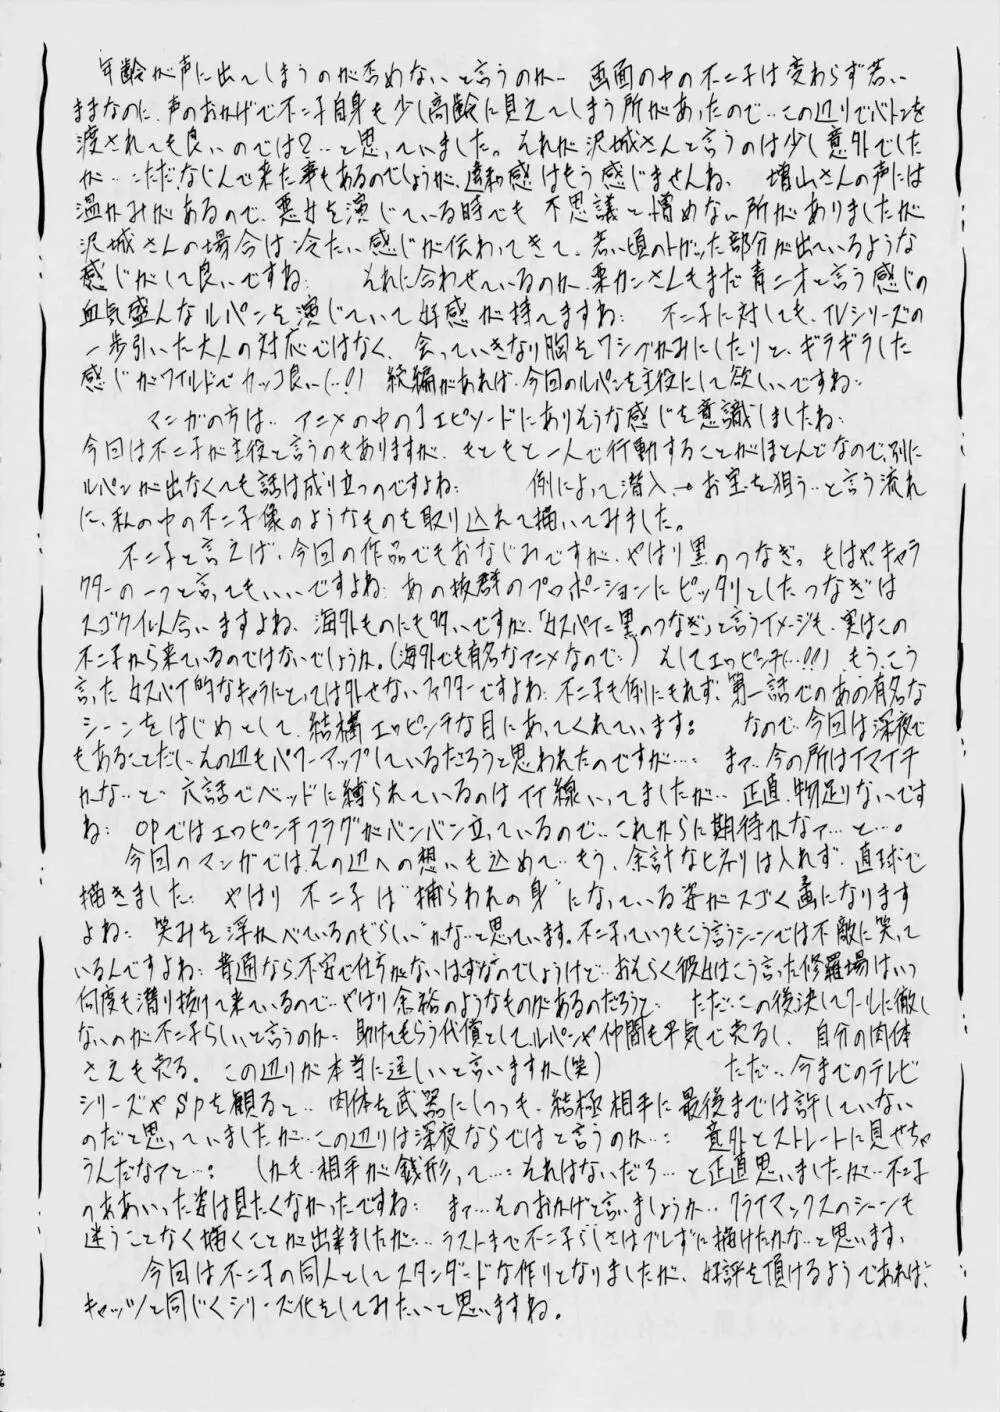 年齢が声に出てしまうのが否めないと言うのか… 画面の中の不二子は変わらず若い
ままなのに、声のおかげで不二子自身も少し高齢に見えてしまう所があったので‥この辺りでバトンを
渡されても良いのでは?‥と思っていました。それが沢城さんと言うのは少し意外でした
が‥ただ、なじんで来た事もあるのでしょうが、違和感はもう感じませんね、 増山さんの声には
温かみがあるので、悪女を演じている時でも 不思議と憎めない所がありましたが
沢城さんの場合は冷たい感じが伝わってきて、若い頃のトガッた部分が出ているような
感じがして良いですね: それに合わせているのか、栗カンさんもまだ青二才と言う感じの
血気盛んなルパンを演じていて好感が持てますね: 不二子に対しても、TVシリーズの
一歩引いた大人の対応ではなく、会っていきなり胸をワシづかみにしたりと、ギラギラした
感じがワイルドでカッコ良い(‥!) 続編があれば、今回のルパンを主役にして欲しいですね‥
マンガの方は‥ アニメの中の1エピソードにありそうな感じを意識しましたね:
今回は不二子が主役と言うのもありますが、もともと一人で行動することがほとんどなので、別に
ルパンが出なくても話は成り立つのですよね: 例によって潜入→お宝を狙う‥と言う流れ
に、私の中の不二子像のようなものを取り込れて描いてみました。
不二子と言えば、今回の作品でもおなじみですが、やはり黒のつなぎっ もはや、キャラ
クターの一つと言ってもいいですよね: あの抜群のプロポーションにピッタリとしたつなぎは
スゴク似合いますよね、海外ものにも多いですが、「女スパイに黒のつなぎ」と言うイメージも、実はこの
不二子から来ているのではないでしょうか。(海外でも有名なアニメなので:) そしてエッピンチ(‥!!) もう、こう
言った女スパイ的なキャラにとっては外せないファクターですよね: 不二子も例にもれず、第一話でのあの有名な
シーンをはじめとして、結構エッピンチな目にあってくれています: なので、今回は深夜で
もあることだし、その辺もパワーアップしているだろうと思われたのですが…: まァ‥今の所はイマイチ
かな‥と‥ 六話でベッドに縛られているのはイイ線いってましたが‥ 正直、物足りないです
ね: OPではエッピンチフラグがバンバン立っているので‥これからに期待かなァ…と…。
今回のマンガではその辺への想いも込めて‥もう、余計なヒネリは入れず、直球で
描きました: やはり 不二子は"捕らわれの身"になっている姿がスゴく画になります
よね: 笑みを浮かべているのも"らしい"かな‥と思っています。不二子っていつもこう言うシーンでは不敵に笑って
いるんですよね: 普通なら、不安で仕方がないはずなのでしょうけど‥おそらく彼女はこう言った修羅場はいつ
何度も潜り抜けて来ているので‥やはり余裕のようなものがあるのだろうと‥ ただ‥この後決してクールに徹し
ないのが不二子らしいと言うのか: 助けてもらう代償としてルパンや仲間も平気で売るし、自分の肉体
さえも売る。この辺りが本当に逞しいと言いますか(笑) ただ‥今までのテレビ
シリーズやSPを観ると‥肉体を武器にしつつも、結極相手に最後までは許していない
のだと思っていましたが‥この辺りは深夜ならではと言うのか…: 意外とストレートに見せちゃ
うんだなァと…: しかも、相手が銭形って…: それはないだろ‥と正直思いましたが‥不二子
のああいった姿は見たくなかったですね: まァ…そのおかげと言いましょうか‥クライマックスのシーンも
迷うことなく描くことが出来ましたが‥ ラストまで不二子らしさはブレずに描けたかな‥と思います、
今回は不二子の同人としてスタンダードな作りとなりましたが、好評を頂けるようであれば、
キャッツと同じくシリーズ化をしてみたいと思いますね。